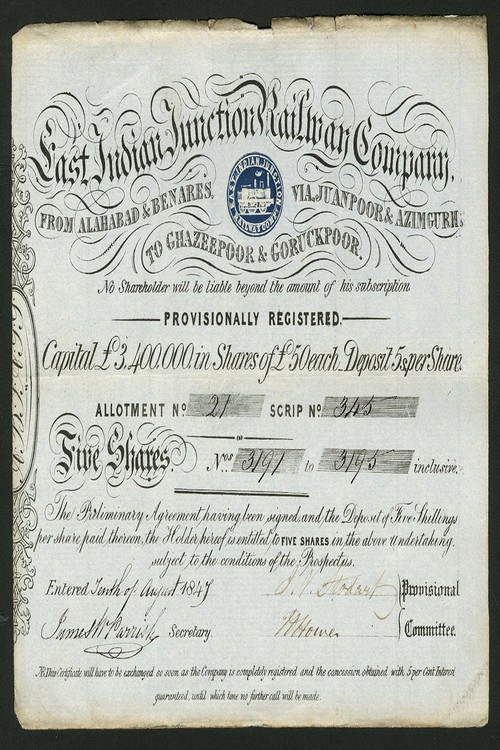 East Indian Junction Railway Company.
EAST INDIAN JUNCTION
RAILWAY COMPY
FROM ALAHABAD & BENARES, VIA, JUANPOOR & AZIMGURH.
TO GHAZEEPOOR & GORUCKPOOR.
No Shareholder will be liable beyond the amount of his subscription
PROVISIONALLY REGISTERED.
Capital £3,400,000, in Shares of £50 each. Deposit 5s per Share.
ALLOTMENT No. 21 SCRIP No. 345
Five Shares. Nos. 3191 to 3195 inclusive.
The Preliminary Agreement having been signed, and the Deposit of Five Shillings
per share paid thereon, the Holder hereof is entitled to FIVE SHARES in the above undertaking
subject to the conditions of the Prospectus.
Entered Tenth of August 1847
Provisional
James W Parrish Secretary.
Committee.
NB This Certificate will have to be exchanged so soon as the Company is completely registered and the concession obtained with 5 per Cent Interest
guaranteed, until which time no further call will be made.